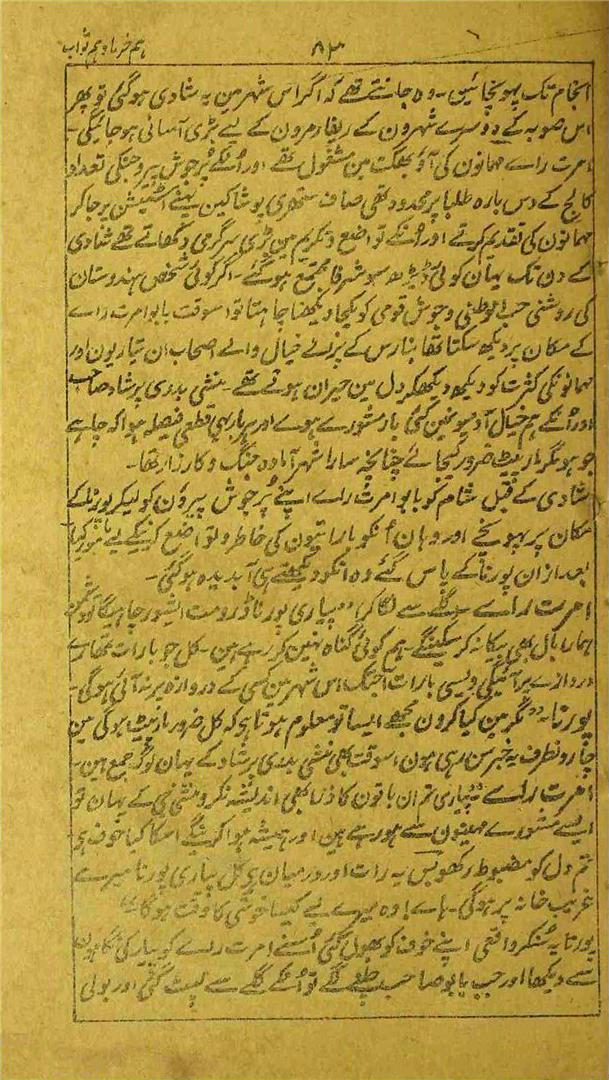 ہم خرما و ہم ثواب
۸۳
انجام تک پہونچائین۔ وہ جانتے تھے کہ اگر اس شہر مین یہ شادی ہوگئی تو پھر
اس صوبہ کے دوسرے شہرون کے ریفارمرون کے لیے بڑی آسانی ہو جائیگی۔
امرت راے مہمانون کی آؤ بھگت مین مشغول تھے اور اُنکے پُرجوش پیرو جنکی تعداد
کالج کے دس بارہ طلبا پر محدود تھی صاف ستھری پوشاکین پہنے اسٹیشن پر جا کر
مہمانون کی تقدیم کرتے اور اُنکے تواضع و تکریم مین بڑی سرگرمی دکھاتے تھے شادی
کے دن تک یہان کوئی ڈیڑھ سو شرفا مجتمع ہوگئے۔ اگر کوئی شخص ہندوستان
کی روشنی حب الوطنی و جوش قومی کو یکجا دیکھنا چاہتا تو اسوقت بابو امرت راے
کے مکان پر دیکھ سکتا تھا بنارس کے پرانے خیال والے اصحاب ان تیاریون اور
مہمانونکی کثرت کو دیکھ دیکھکر دل مین حیران ہوتے تھے۔ منشی بدری پرشاد صاحب
اور اُنکے ہم خیال آدمیونمین کئی بار مشورے ہوے اور ہر بار یہی قطعی فیصلہ ہوا کہ چاہے
جو ہو مگر مارپیٹ ضرور کیجائے چنانچہ سارا شہر آمادہ جنگ و کارزار تھا۔
شادی کے قبل شام کو بابو امرت راے اپنے پُرجوش پیروؤن کو لیکر پورنا کے
مکان پر پہونچے اور وہان اُنکو باراتیون کی خاطر و تواضع کرنیکے لیے مامور کیا
بعد ازان پورنا کے پاس گئے وہ انکو دیکھتے ہی آبدیدہ ہوگئی۔
امرت راے۔ گلے سے لگا کر، "پیاری پورنا ڈرو مت ایشور چاہیگا تو دشمن
ہمارا بال بھی بیکا نہ کرسکینگے۔ ہم کوئی گناہ نہین کر رہے ہین۔ کل جو بارات تمھارے
دروازے پر آئیگی ویسی بارات ابتک اس شہر مین کسی کے دروازہ پر نہ آئی ہوگی۔
پورنا۔ "مگر مین کیا کرون مجھے ایسا تو معلوم ہوتا ہے کہ کل ضرور مارپیٹ ہوگی مین
چارونطرف یہ خبر سن رہی ہون اسوقت بھی منشی بدری پرشاد کے یہان لوگ جمع ہین۔
امرت راے "پیاری تم ان باتون کا ذرا بھی اندیشہ نکرو منشی جی کے یہان تو
ایسے مشورے مہینون سے ہو رہے ہین اور ہمیشہ ہوا کرینگے اسکا کیا خوف ہے
تم دل کو مضبوط رکھو بس یہ رات اور درمیان ہے کل پیاری پورنا میرے
غریب خانہ پر ہوگی۔ ہاے! وہ میرے لیے کیسا خوشی کا وقت ہوگا"
پورنا یہ سُنکر واقعی اپنے خوف کو بھول گئی اُسنے امرت راے کو پیار کی نگاہون
سے دیکھا اور جب بابو صاحب چلنے لگے تو اُنکے گلے سے لپٹ گئی اور بولی